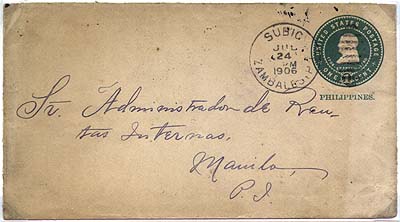 SUBIC
JUL
24
PM
1906
ZAMBALES, P.I.
UNITED STATES POSTAGE
ONE CENT
PHILIPPINES.
Sr. Administrador de Ren-
tas Internas,
Manila,
P. I.